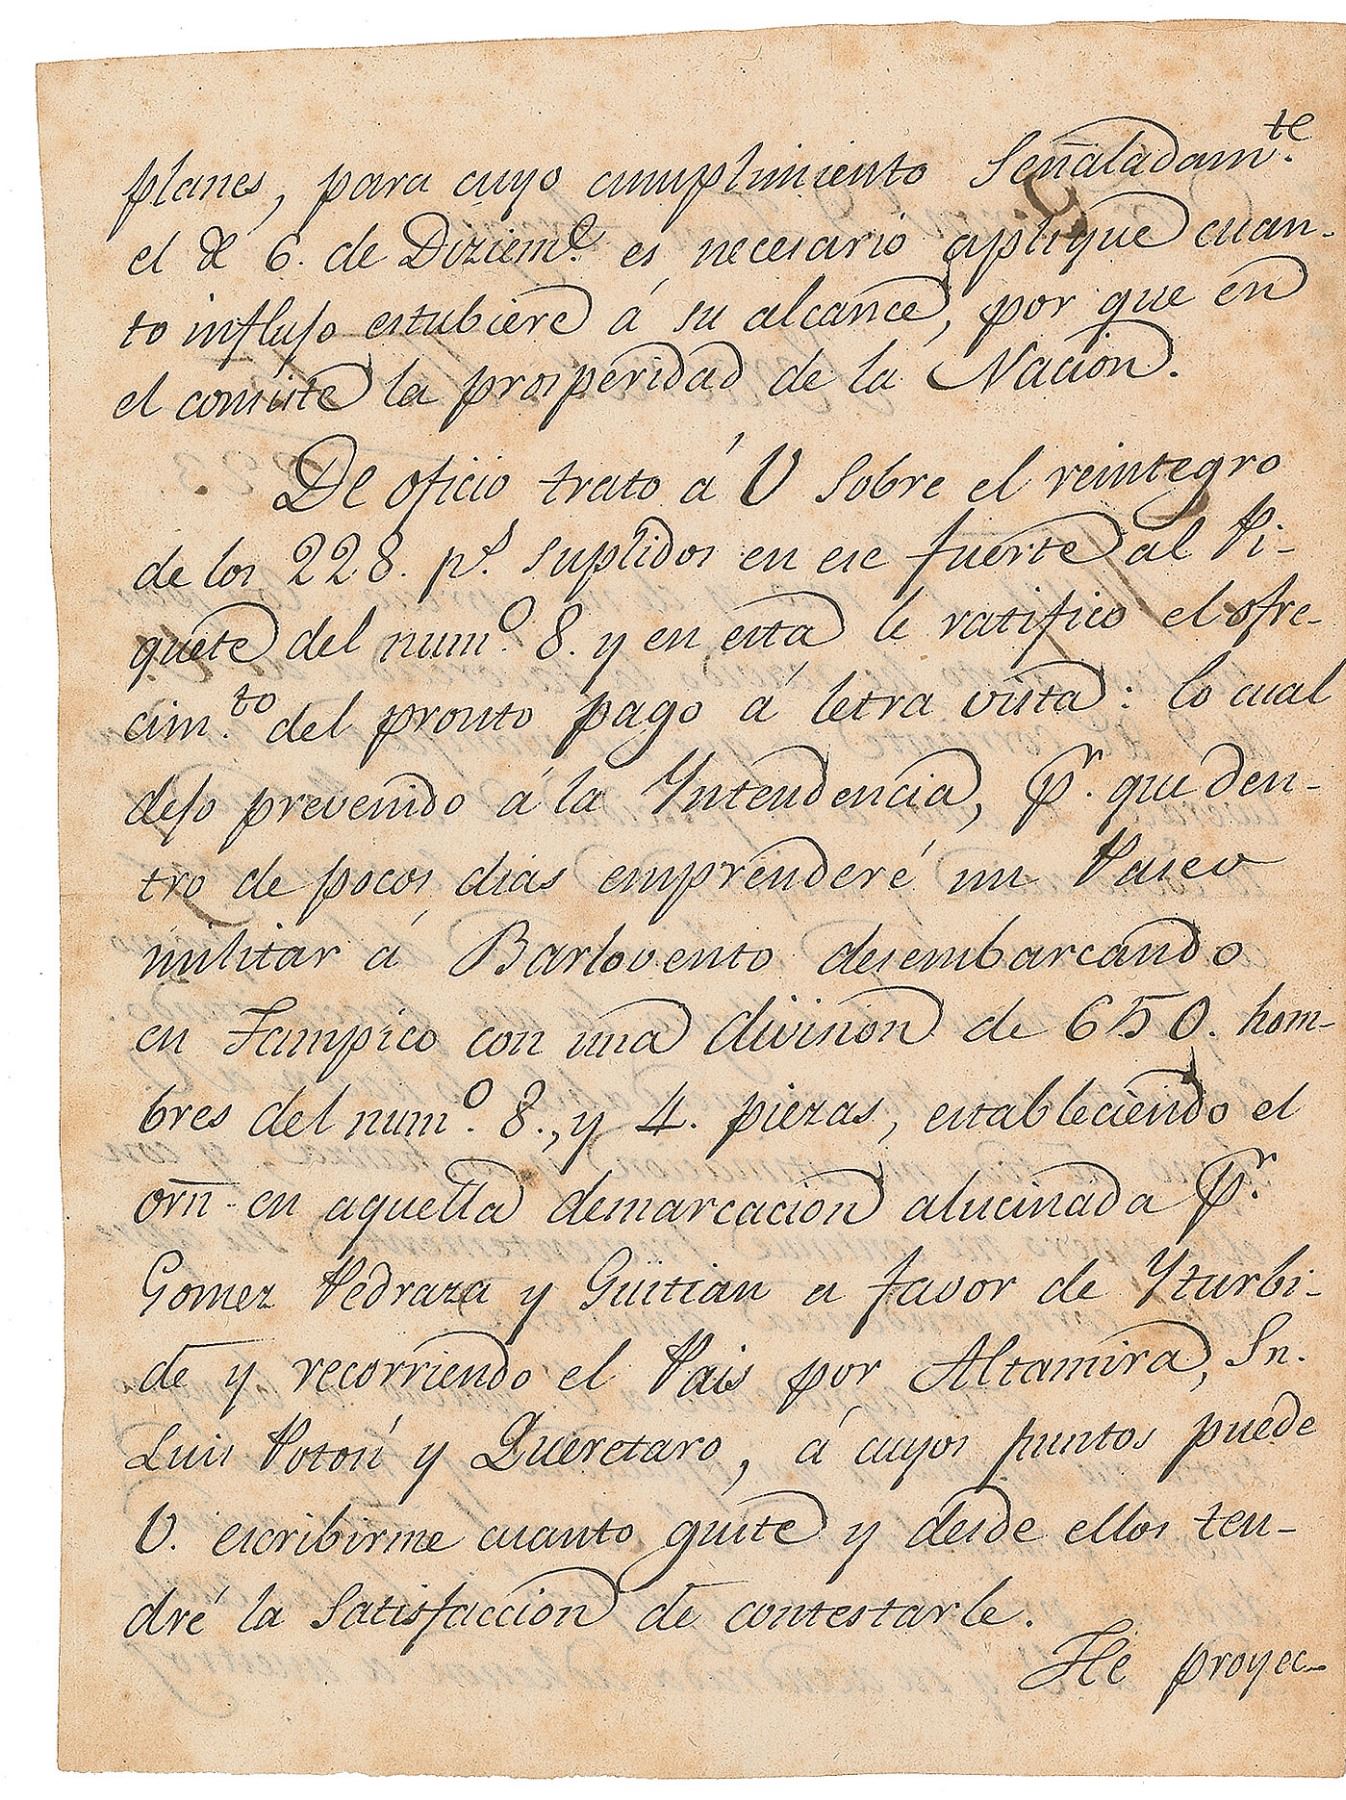 planes, para cuyo cumplimiento Señaladam.te
el de 6. de Diziem.e es necesario aplique cuan-
to influjo estubiere á su alcance, por que en
el consiste la prosperidad de la Nacion.
De oficio trato á V sobre el reintegro
de los 228. p.s suplidos en ese fuerte al Pi-
quete del num.o 8. y en esta le ratifico el ofre-
cim.to del pronto pago á letra vista: lo cual
dejo prevenido á la Yntendencia, pr. que den-
tro de pocos dias emprenderé un Paseo
militar á Barlovento desembarcando
en Tampico con una division de 650. hom-
bres del num.o 8., y 4. piezas, estableciendo el
orn. en aquella demarcacion alucinada pr.
Gomez Pedraza y Guitian a favor de Yturbi-
de y recorriendo el Pais por Altamira, Sn.
Luis Potosí y Queretaro, á cuyos puntos puede
V. escribirme cuanto guste y desde ellos ten-
dré la Satisfaccion de contestarle.
He proyec-